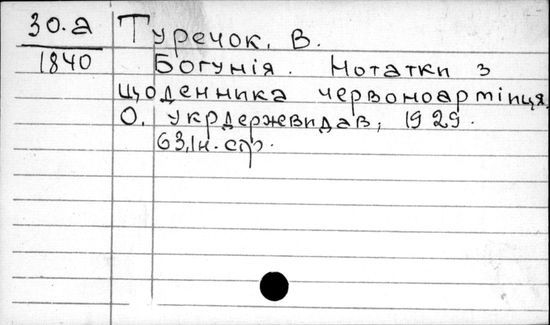 30.а
1840
Туречок. В.
Богунія. Нотатки з
щоденника червоноармійця.
О. укрдержевидав, 1929.
63,1н. стр.